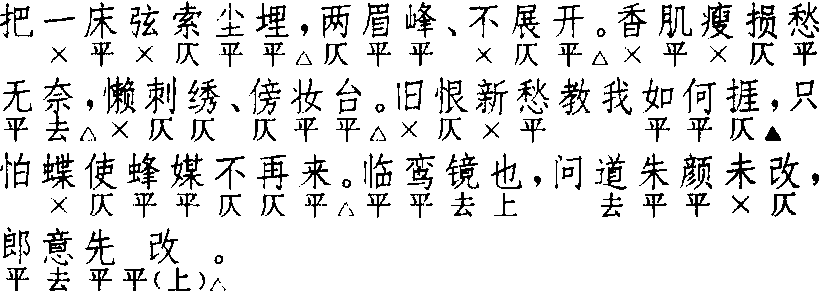 把一床弦索尘埋，两眉峰、不展开。香肌瘦损愁
×平×仄平平△仄平平×仄平△×平×仄平
无奈，懒刺绣、傍妆台。旧恨新愁教我如何捱，只
平去△×仄仄仄平平△×仄×平平平仄▲
怕蝶使蜂媒不再来。临鸾镜也，问道朱颜未改，
×仄平平仄仄平△平平去上去平平×仄
郎意先改。
平去平平(上)△